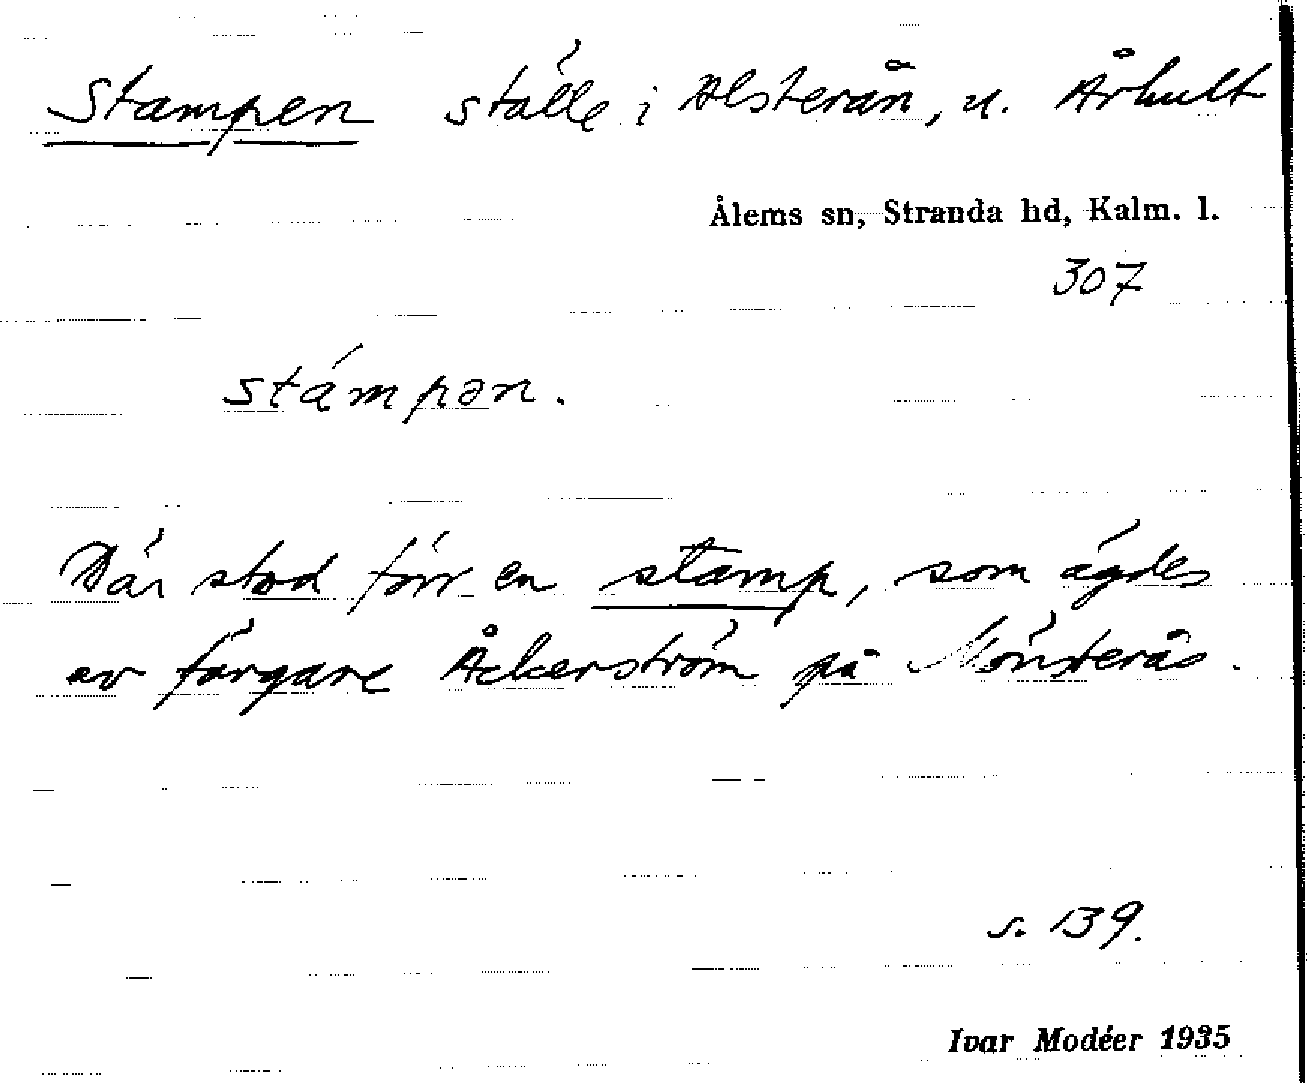 Stampen ställe i Alsterån, n. Århult
Ålems sn, Stranda hd, Kalm. l.
307
stámpən.
Där stod förr en stamp, som ägdes
av färgare Åckerström på Mönsterås.
s. 139.
Ivar Modéer 1935